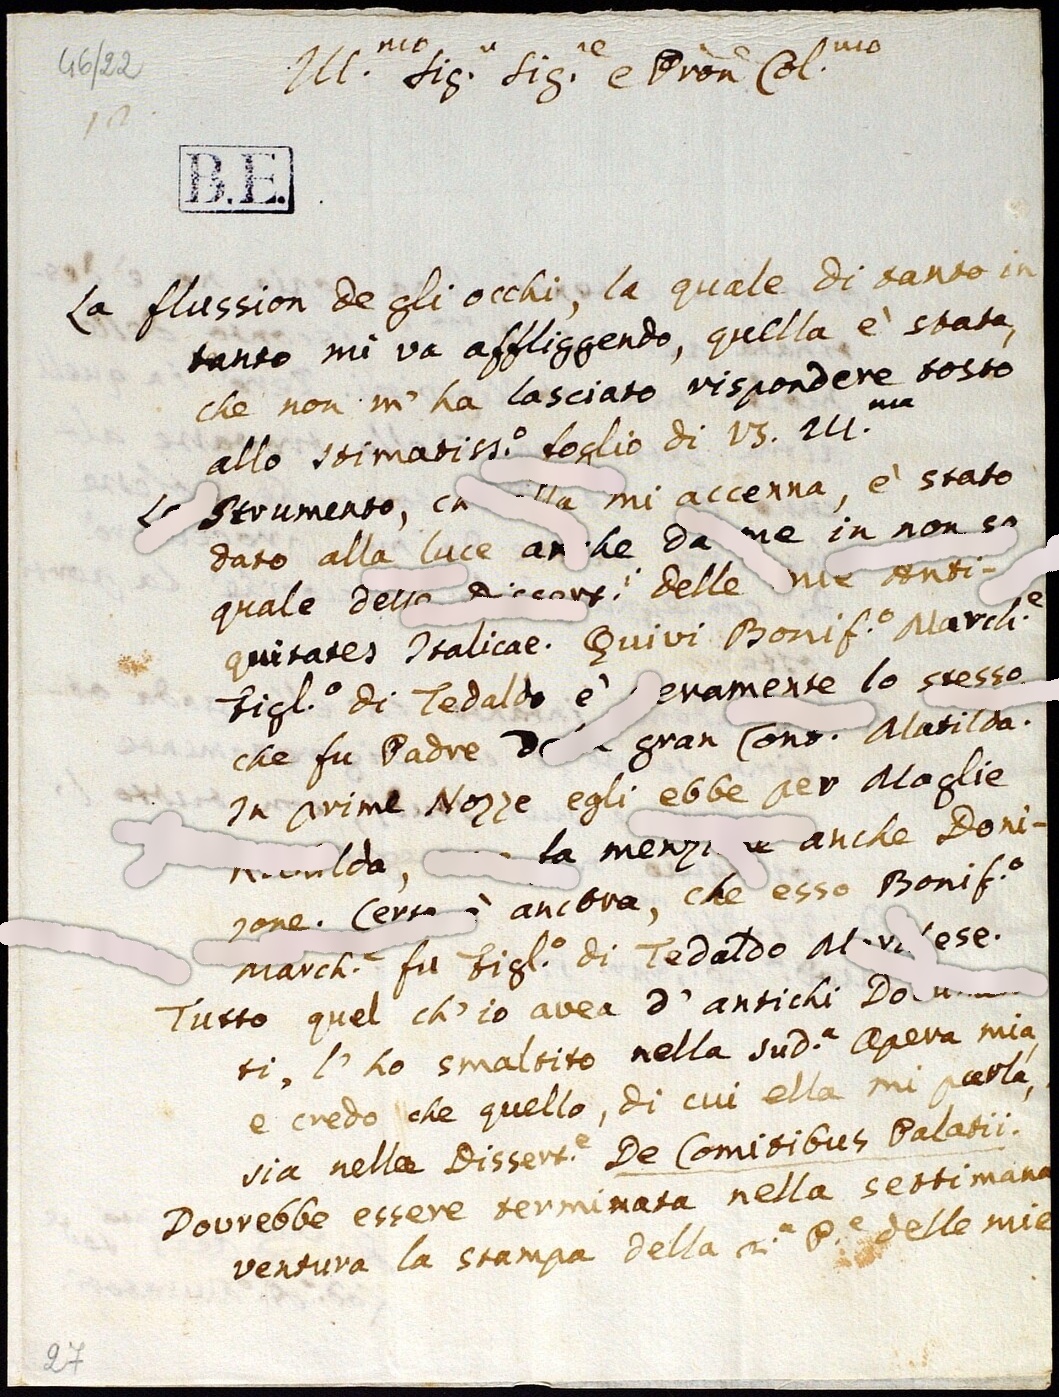 46/22
Ill.mo Sig.r Sig.re e Pròn Col.mo
B.E.
La flussion degli occhi, la quale di tanto in
tanto mi va affliggendo, quella è stata,
che non m' ha lasciato rispondere tosto
allo stimatiss.o foglio di VS. Ill.ma
Strumento, mi accenna, è stato
dato alla luce anche da me in non so
quale delle Dissert.i delle mie Anti-
quitates Italicae. Quivi Bonif.o March.e
Figl.o di Tedaldo è veramente lo stesso
che fu Padre della gran Cont. Matilda.
In prime Nozze egli ebbe per Moglie
la menzione anche Doni-
zone. Certo è ancora, che esso Bonif.o
March.e fu Figl.o di Tedaldo Marchese.
Tutto quel ch' io avea d' antichi Documen
ti, l' ho smaltito nella sud.a Opera mia,
e credo che quello, di cui ella mi parla,
sia nella Dissert.e De Comitibus Palatii.
Dovrebbe essere terminata nella settimana
ventura la stampa della 2.a P.e delle mie
27